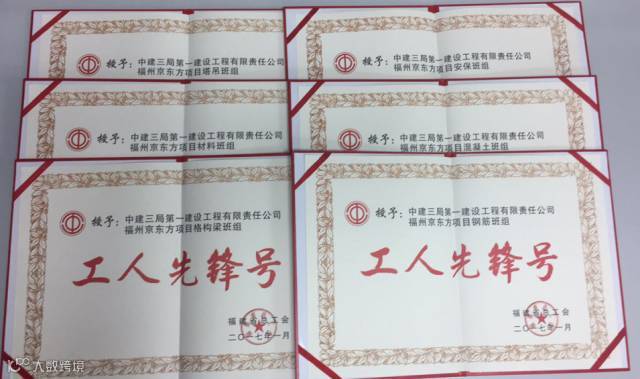 授予：中建三局第一建设工程有限责任公司
福州京东方项目塔吊班组
授予：中建三局第一建设工程有限责任公司
福州京东方项目安保班组
授予：中建三局第一建设工程有限责任公司
福州京东方项目材料班组
授予：中建三局第一建设工程有限责任公司
福州京东方项目混凝土班组
授予：中建三局第一建设工程有限责任公司
福州京东方项目格构梁班组
工人先锋号
福建省总工会
二〇一七年一月
授予：中建三局第一建设工程有限责任公司
福州京东方项目钢筋班组
工人先锋号
福建省总工会
二〇一七年一月
大数跨境